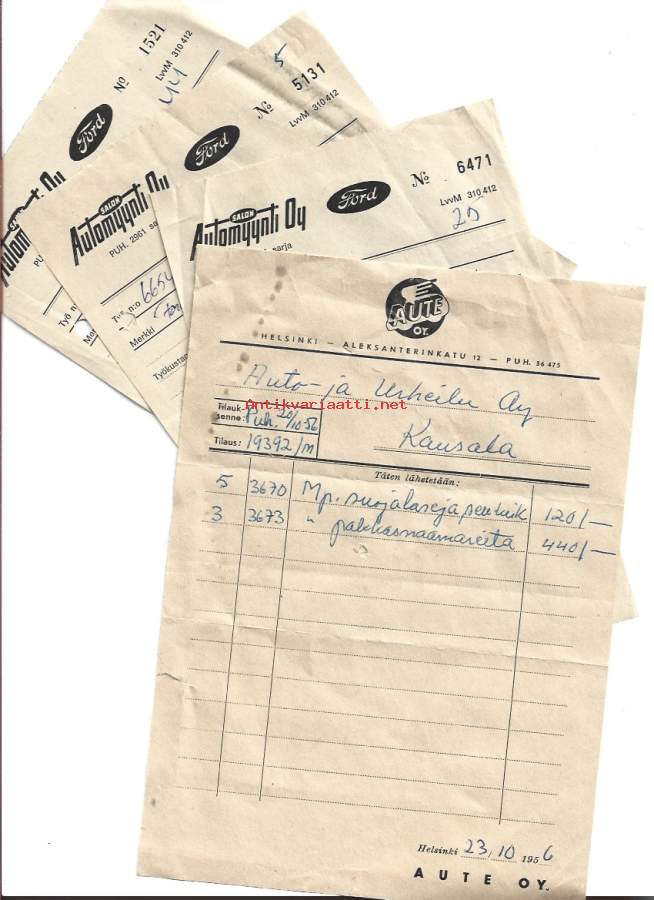 Nº 1521
LvvM 310 412
44
Ford
Automyynti Oy
PU
Työ n
Me
5
Nº 5131
LvvM 310 412
Ford
SALON
Automyynti Oy
PUH. 2961 sa
Työ n:o 6654
Merkki
Työkustan
Nº 6471
LvvM 310 412
20
Ford
SALON
Automyynti Oy
sarja
AUTE
OY.
HELSINKI — ALEKSANTERINKATU 12 — PUH. 36 475
Auto- ja Urheilu Oy
Kausala
Tilauk-
senne: Puh. 20/10-56
Tilaus: 19392/m
Täten lähetetään:
5 3670 Mp. suojalaseja 120/—
3 3673 " pakkasnaamareita 440/—
Helsinki 23/10 1956
AUTE OY.
Antikvariaatti.net